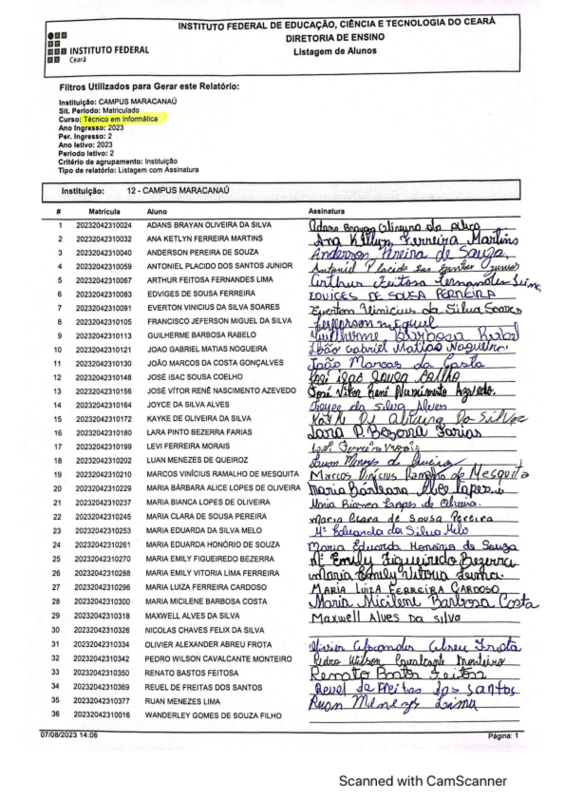 INSTITUTO FEDERAL DE EDUCAÇÃO, CIÊNCIA E TECNOLOGIA DO CEARÁ
DIRETORIA DE ENSINO
Listagem de Alunos
INSTITUTO FEDERAL
Ceará
Filtros Utilizados para Gerar este Relatório:
Instituição: CAMPUS MARACANAÚ
Sit. Período: Matriculado
Curso: Técnico em Informática
Ano Ingresso: 2023
Per. Ingresso: 2
Ano letivo: 2023
Período letivo: 2
Critério de agrupamento: Instituição
Tipo de relatório: Listagem com Assinatura
Instituição: 12 - CAMPUS MARACANAÚ
# Matrícula Aluno Assinatura
1 20232042310024 ADANS BRAYAN OLIVEIRA DA SILVA Adans Brayan Oliveira da Silva
2 20232042310032 ANA KETLYN FERREIRA MARTINS Ana Ketlyn Ferreira Martins
3 20232042310040 ANDERSON PEREIRA DE SOUZA Anderson Pereira de Souza
4 20232042310059 ANTONIEL PLACIDO DOS SANTOS JUNIOR Antoniel Placido dos Santos Junior
5 20232042310067 ARTHUR FEITOSA FERNANDES LIMA Arthur Feitosa Fernandes Lima
6 20232042310083 EDVIGES DE SOUSA FERREIRA EDVIGES DE SOUSA FERREIRA
7 20232042310091 EVERTON VINICIUS DA SILVA SOARES Everton Vinicius da Silva Soares
8 20232042310105 FRANCISCO JEFERSON MIGUEL DA SILVA Jefferson miguel
9 20232042310113 GUILHERME BARBOSA RABELO Guilherme Barbosa Rabelo
10 20232042310121 JOAO GABRIEL MATIAS NOGUEIRA João Gabriel Matias Nogueira
11 20232042310130 JOÃO MARCOS DA COSTA GONÇALVES João Marcos da Costa
12 20232042310148 JOSÉ ISAC SOUSA COELHO José Isac Sousa Coelho
13 20232042310156 JOSÉ VITOR RENÊ NASCIMENTO AZEVEDO José Vitor Renê Nascimento Azevedo.
14 20232042310164 JOYCE DA SILVA ALVES Joyce da silva Alves
15 20232042310172 KAYKE DE OLIVEIRA DA SILVA Kayke De Oliveira Da Silva
16 20232042310180 LARA PINTO BEZERRA FARIAS Lara P. Bezerra Farias
17 20232042310199 LEVI FERREIRA MORAIS Levi Ferreira Morais
18 20232042310202 LUAN MENEZES DE QUEIROZ Luan Menezes de Queiroz
19 20232042310210 MARCOS VINÍCIUS RAMALHO DE MESQUITA Marcos Vinícius Ramalho de Mesquita
20 20232042310229 MARIA BÁRBARA ALICE LOPES DE OLIVEIRA Maria Bárbara Alice Lopes
21 20232042310237 MARIA BIANCA LOPES DE OLIVEIRA Maria Bianca Lopes de Oliveira.
22 20232042310245 MARIA CLARA DE SOUSA PEREIRA Maria Clara de Sousa Pereira
23 20232042310253 MARIA EDUARDA DA SILVA MELO Mª Eduarda da Silva Melo
24 20232042310261 MARIA EDUARDA HONÓRIO DE SOUZA Maria Eduarda Honório de Souza
25 20232042310270 MARIA EMILY FIGUEIREDO BEZERRA Mª Emily Figueiredo Bezerra
26 20232042310288 MARIA EMILY VITORIA LIMA FERREIRA Maria Emily Vitoria Lima
27 20232042310296 MARIA LUIZA FERREIRA CARDOSO MARIA LUIZA FERREIRA CARDOSO
28 20232042310300 MARIA MICILENE BARBOSA COSTA Maria Micilene Barbosa Costa
29 20232042310318 MAXWELL ALVES DA SILVA Maxwell Alves da silva
30 20232042310326 NICOLAS CHAVES FELIX DA SILVA
31 20232042310334 OLIVIER ALEXANDER ABREU FROTA Olivier Alexander Abreu Frota
32 20232042310342 PEDRO WILSON CAVALCANTE MONTEIRO Pedro Wilson Cavalcante Monteiro
33 20232042310350 RENATO BASTOS FEITOSA Renato Bastos Feitosa
34 20232042310369 REUEL DE FREITAS DOS SANTOS Reuel de Freitas dos Santos
35 20232042310377 RUAN MENEZES LIMA Ruan Menezes Lima
36 20232042310016 WANDERLEY GOMES DE SOUZA FILHO
07/08/2023 14:06 Página: 1
Scanned with CamScanner